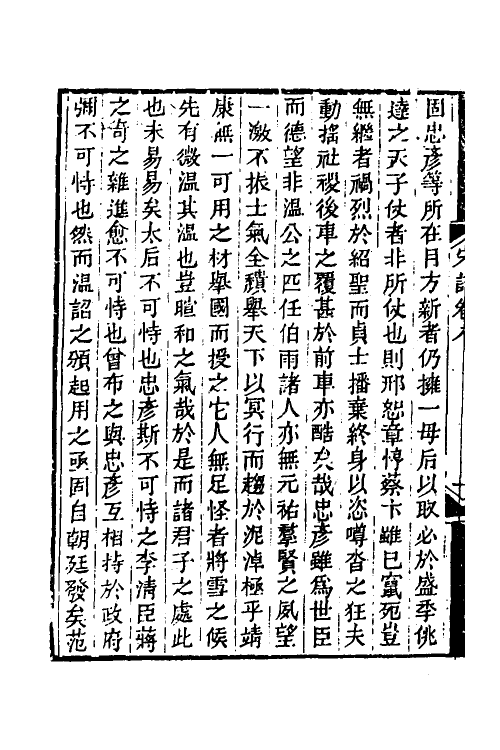 固忠彥等所在目方新者仍擁一母后以取必於盛季佻
達之天子仗者非所仗也則邢恕章惇蔡卞雖已竄死豈
無繼者禍烈於紹聖而貞士播棄終身以恣噂沓之狂夫
動搖社稷後車之覆甚於前車亦酷矣哉忠彥雖爲世臣
而德望非溫公之匹任伯雨諸人亦無元祐羣賢之夙望
一激不振士氣全穨舉天下以冥行而趨於泥淖極乎靖
康無一可用之材舉國而授之它人無足怪者將雪之候
先有微溫其溫也豈暄和之氣哉於是而諸君子之處此
也未易易矣太后不可恃也忠彥斯不可恃之李清臣蔣
之奇之雜進愈不可恃也曾布之與忠彥互相持於政府
彌不可恃也然而溫詔之頒起用之亟固自朝廷發矣范